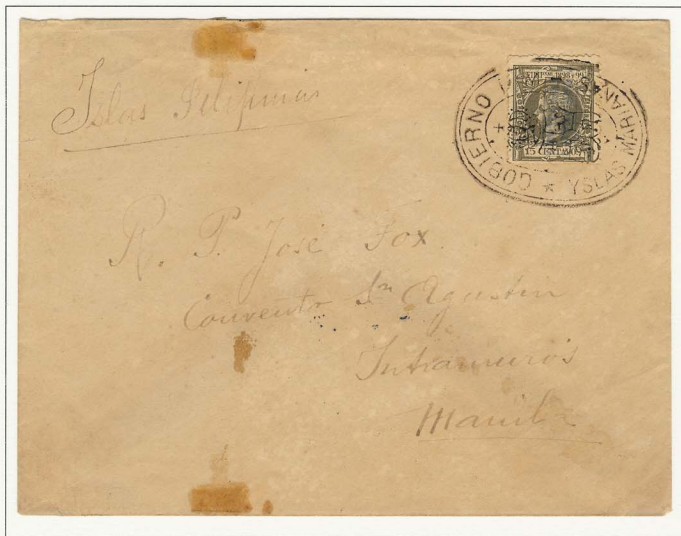 Islas Filipinas
GOBIERNO
YSLAS MARIANAS
15 CENTAVOS
R. P. José Fox.
Convento Sn Agustin
Intramuros
Manila